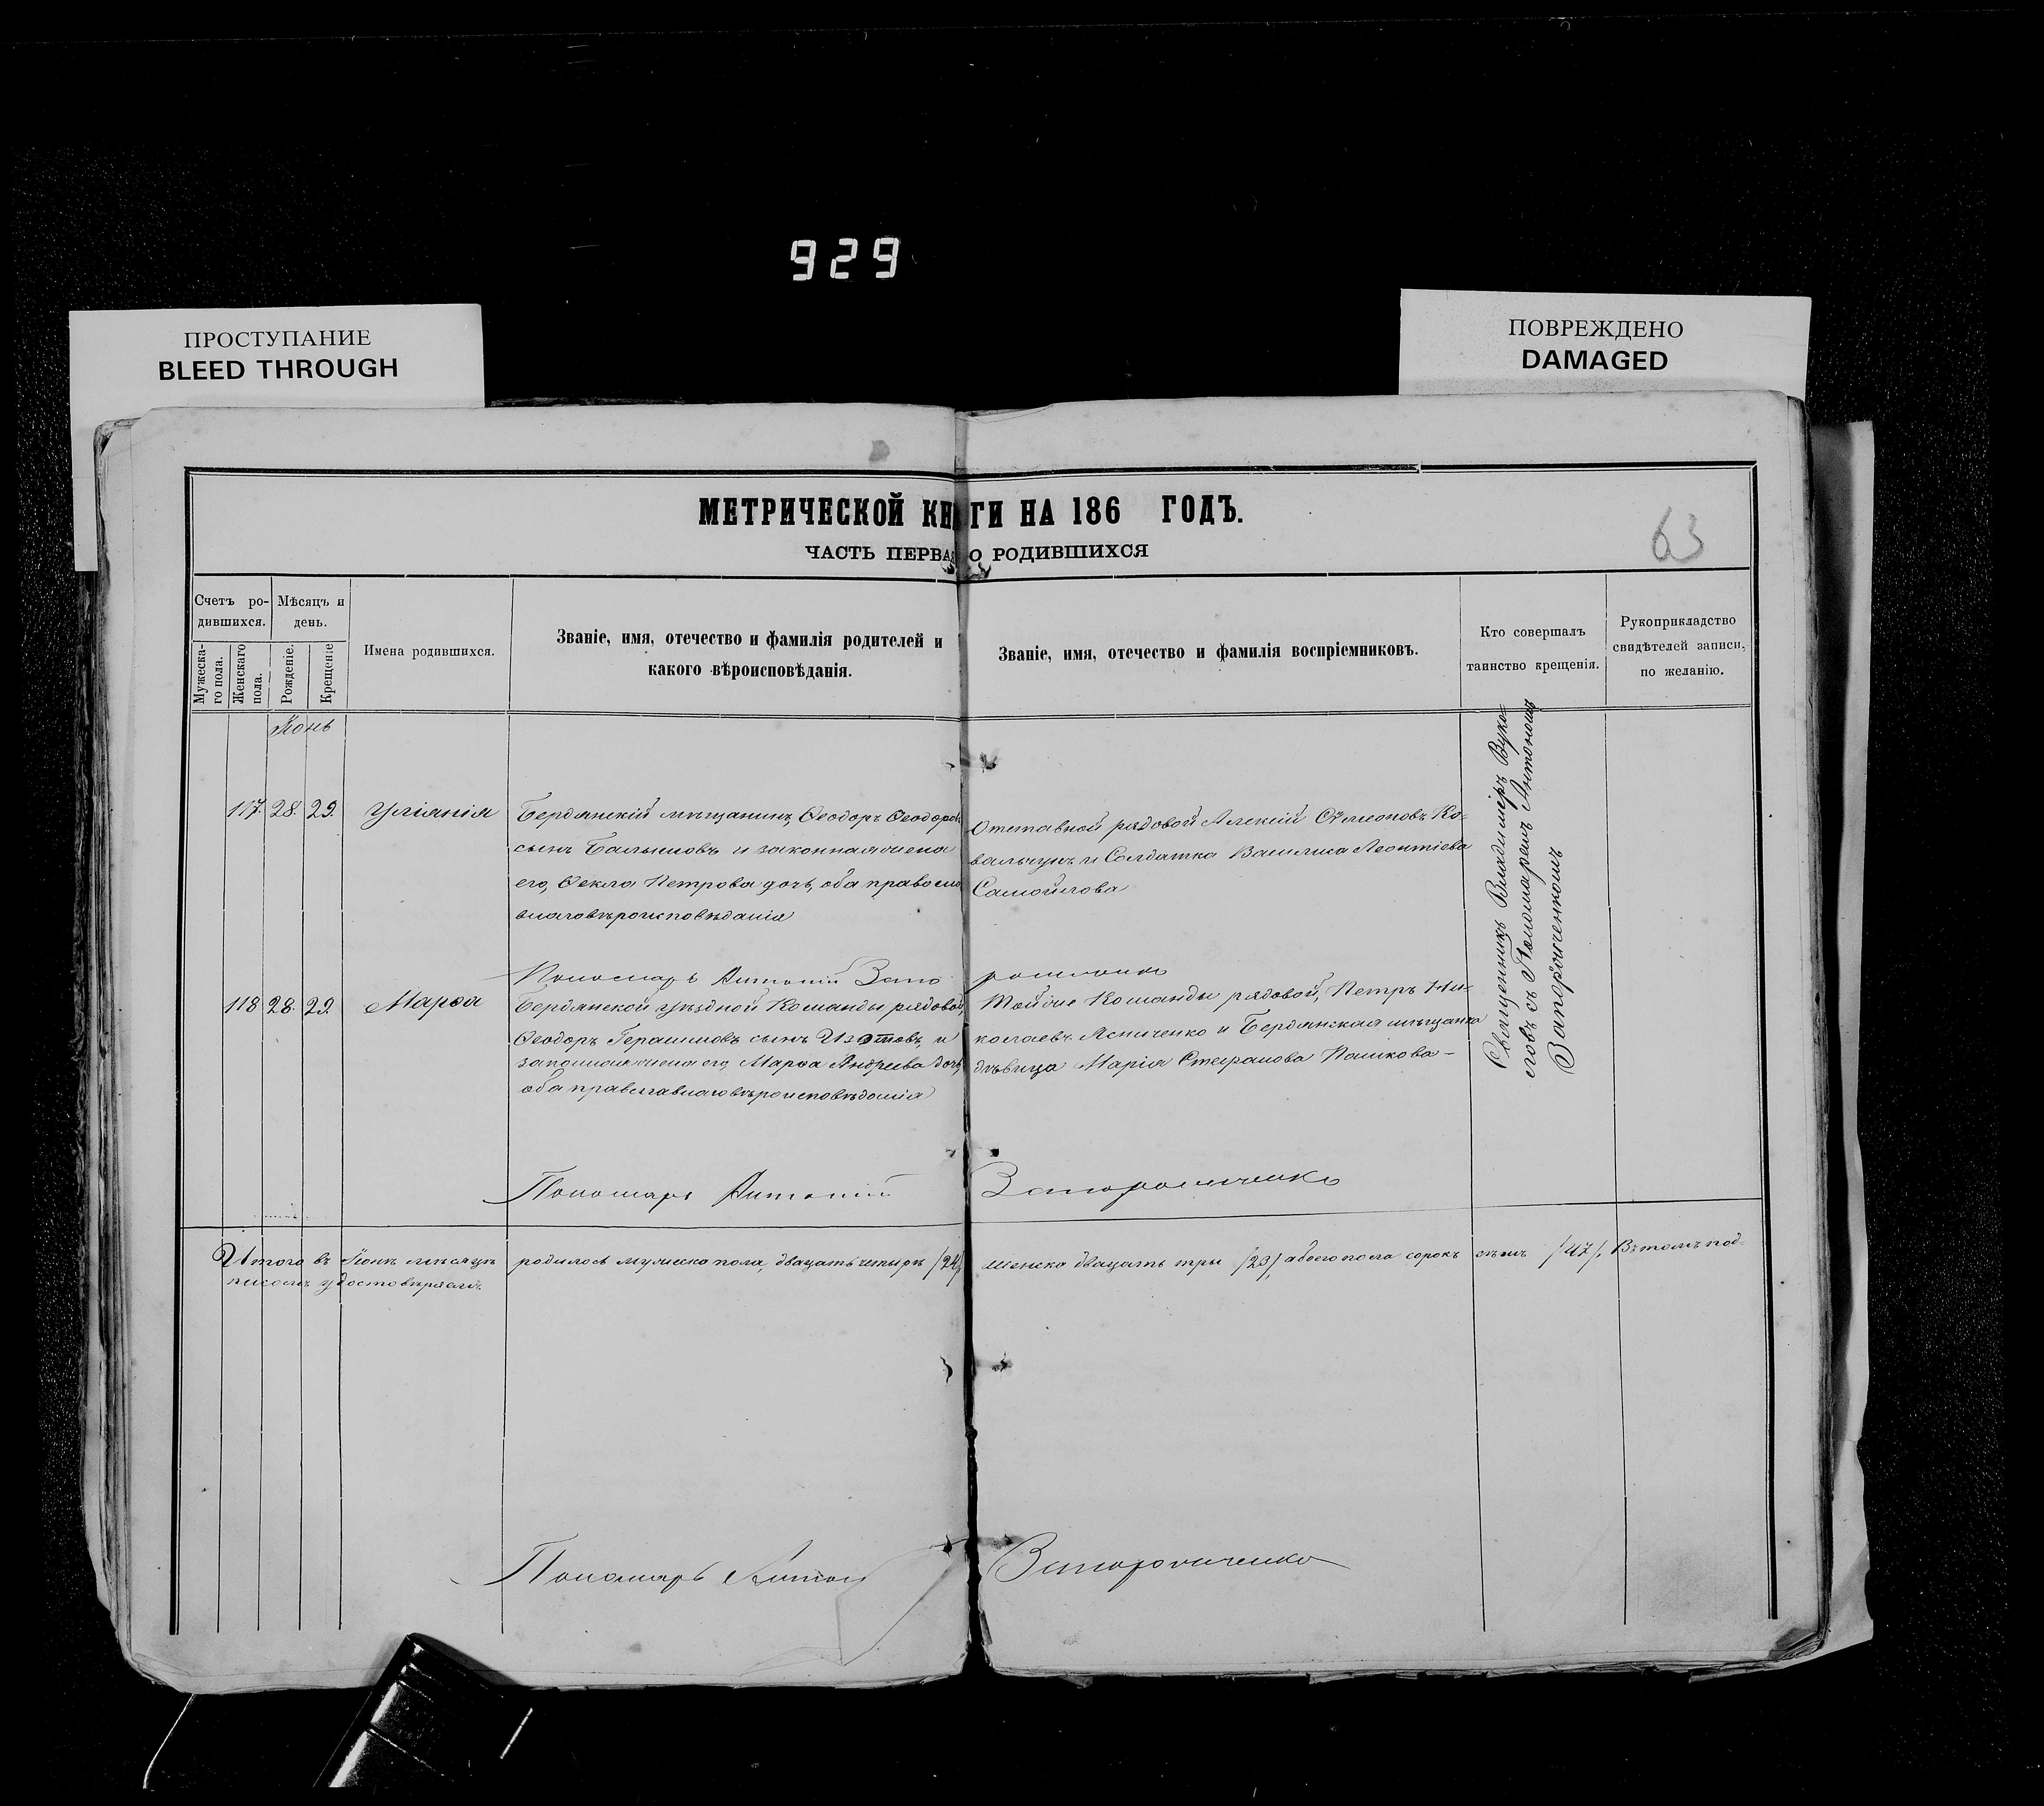 929
ПРОСТУПАНИЕ
BLEED THROUGH
ПОВРЕЖДЕНО
DAMAGED
МЕТРИЧЕСКОЙ КНИГИ НА 186 ГОДЪ.
63
ЧАСТЬ ПЕРВАЯ О РОДИВШИХСЯ
Счетъ ро-
дившихся.
Мужеска-
го пола.
Женскаго
пола.
Мѣсяцъ и
день.
Рожденіе.
Крещеніе
Имена родившихся.
Званіе, имя, отечество и фамилія родителей и
какого вѣроисповѣданія.
Званіе, имя, отечество и фамилія воспріемниковъ.
Кто совершалъ
таинство крещенія.
Рукоприкладство
свидѣтелей записи,
по желанію.
Іюнь
117. 28. 29. Уліянія
Бердянскій мѣщанинъ, Ѳеодоръ Ѳеодоровъ
сынъ и законная жена
его, Ѳекла Петрова дочь, оба православ
внаго вѣроисповѣданія
Отставной рядовой Алексій Сѵмеоновъ Ко-
вальчукъ и Солдатка Василиса Леонтіева
Самойлова
Пономарь Антоній Запо рожченко
118 28. 29 Марѳа
Бердянской уѣздной Команды рядовой,
Ѳеодоръ Герасимовъ сынъ Изотовъ, и
законная жена его, Марѳа Андреева дочь,
оба православнаго вѣроисповѣданія
Той же Команды рядовой, Петръ Ни-
колаевъ Ясниченко и Бердянская мѣщанка
дѣвица Марія Стефанова Пашкова-
Священникъ Владиміръ Вуко-
ловъ съ Пономаремъ Антоніемъ
Запорожченкомъ
Пономарь Антоній Запорожченко
Итого въ Іюнѣ мѣсяцѣ родилось мужеска пола, двацать четыре /24/, женска двацать три /23/, обоего пола сорокъ семь /47/. Въ томъ под-
писомъ удостовѣряемъ.
Пономарь Антон Запорожченко